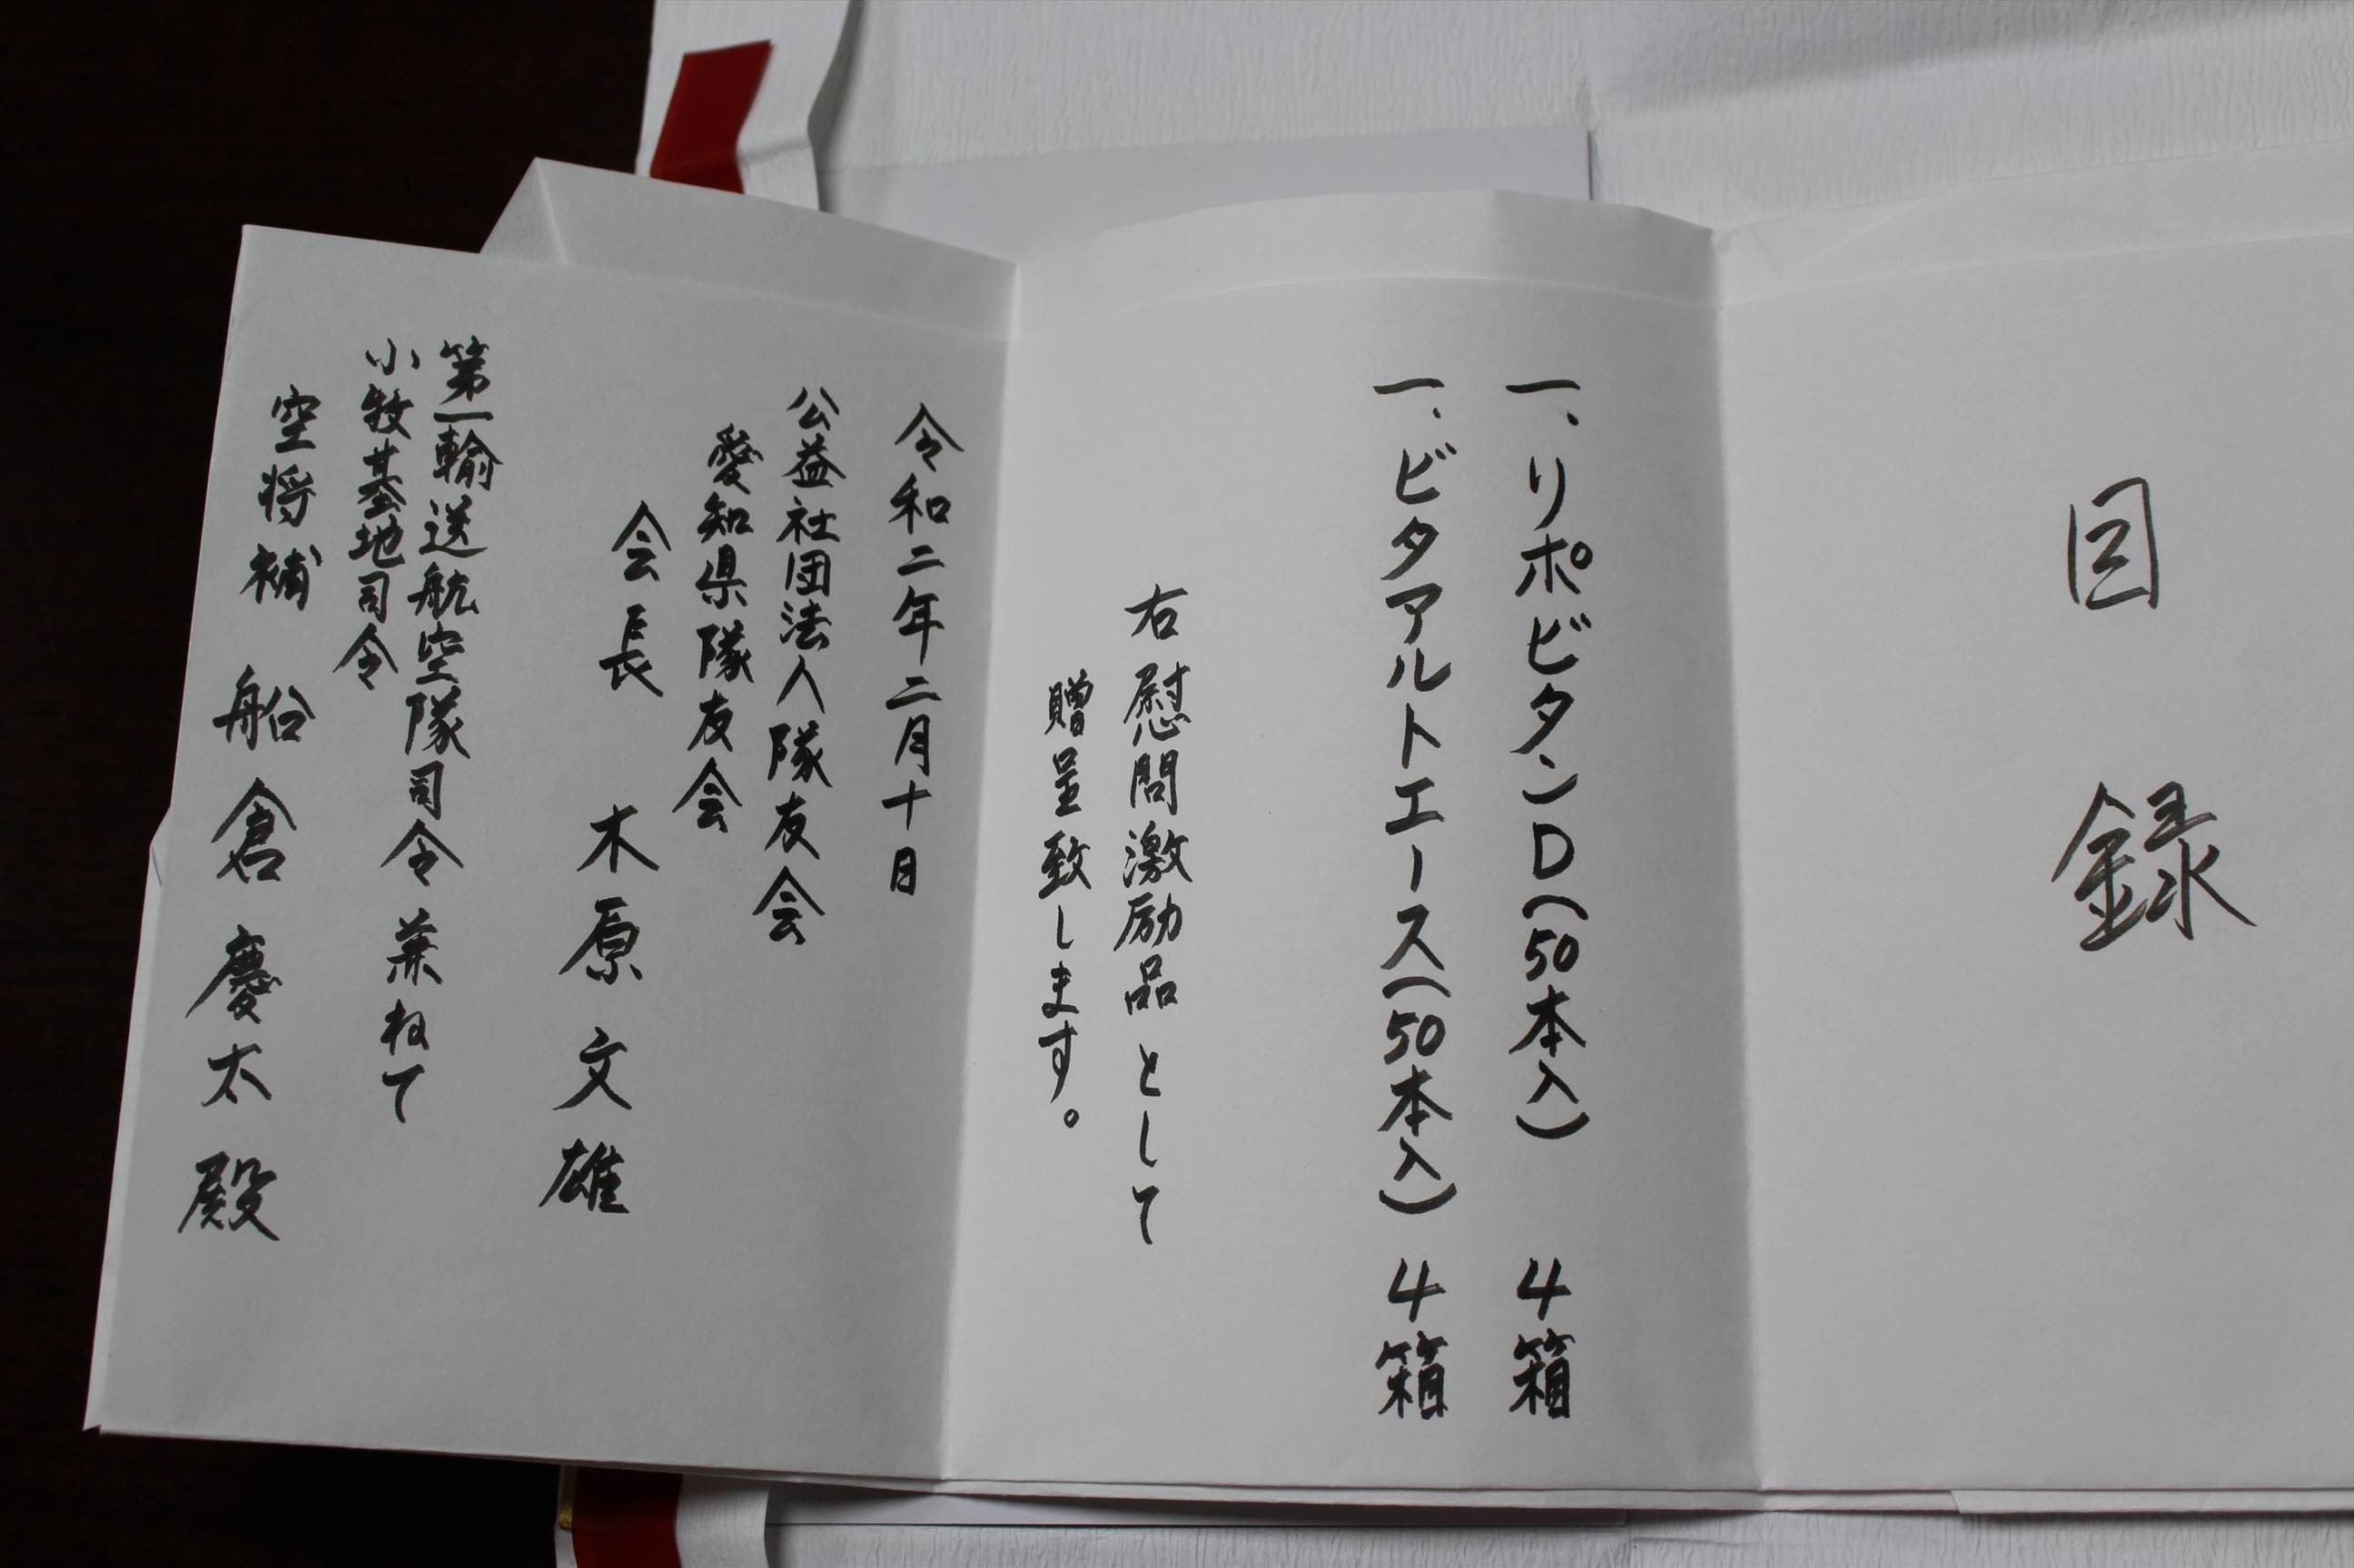 目録
一、リポビタンD(50本入) 4箱
一、ビタアルトエース(50本入) 4箱
右慰問激励品として
贈呈致します。
令和二年二月十日
公益社団法人隊友会
愛知県隊友会
会長 木原文雄
第一輸送航空隊司令兼ねて
小牧基地司令
空将補 船倉慶太殿